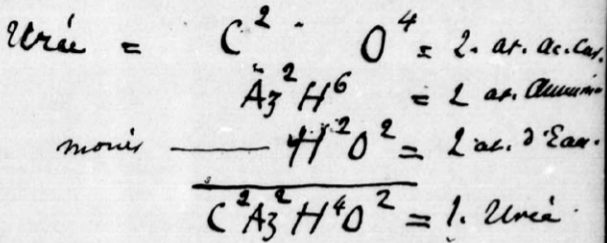 Urée = C² O⁴ = 2. at. ac. Car.
Äz² H⁶ = 2 at. ammonia
moins — H²O² = 2 at. d'Eau.
C²Az²H⁴O² = 1. Urée.